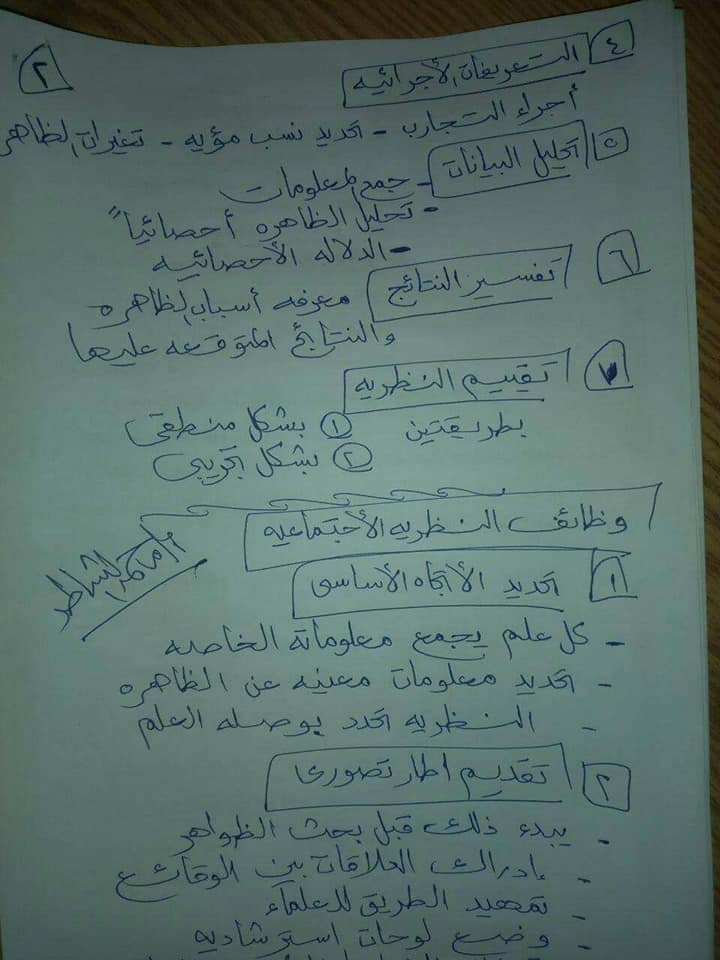 ٢
٤ التعريفات الأجرائيه
أجراء التجارب - تحديد نسب مؤيه - تغيرات الظاهر
٥ تحليل البيانات - جمع المعلومات
- تحليل الظاهره أحصائياً
- الدلاله الأحصائيه
٦ تفسير النتائج معرفه أسباب الظاهره
والنتائج المتوقعه عليها
٧ تقييم النظريه
بطريقتين ① بشكل منطقى
② بشكل تجريبى
وظائف النظريه الأجتماعيه
١ تحديد الأتجاه الأساسى
- كل علم يجمع معلوماته الخاصه
- تحديد معلومات معينه عن الظاهره
- النظريه تحدد بوصله العلم
٢ تقديم اطار تصورى
- يبدء ذلك قبل بحث الظواهر
- إدراك العلاقات بين الوقائع
- تمهيد الطريق للعلماء
- وضع لوحات استرشاديه